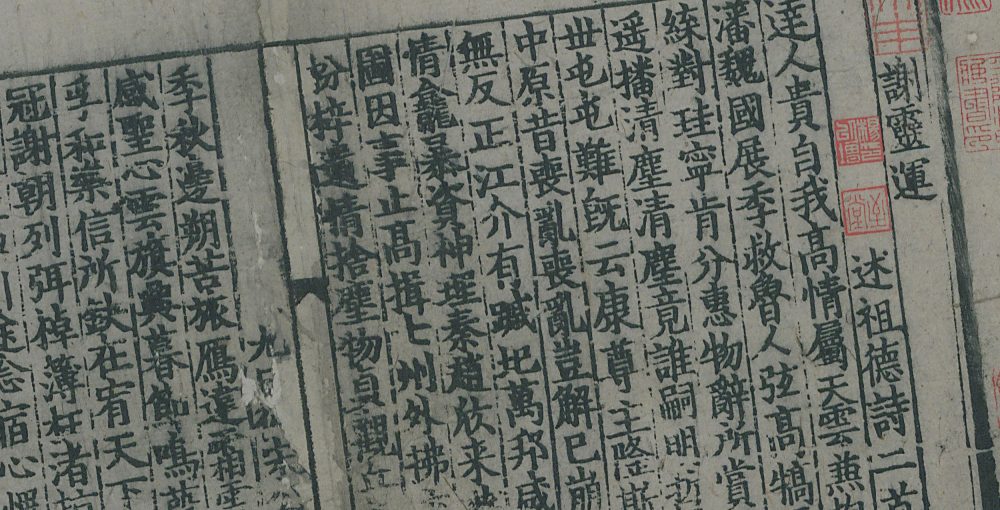 謝靈運
述祖德詩二首
達人貴自我高情屬天雲兼抱
潘魏國展季救魯人弦高犒
綀對珪寧肯分惠物辭所賞
遥播清塵清塵竟誰嗣明哲
丗屯屯難旣云康尊主隆斯
中原昔喪亂喪亂豈解已崩
無反正江介有蹙圮萬邦咸
情龕暴資神理秦趙欣来
圖因事止高揖七州外拂
枌梓遺情捨塵物貞觀丘
九日從宋
季秋邊朔苦旅鴈違霜雪
感聖心雲旗興暮節鳴葭
孚和樂信所缺在宥天下
冠謝朝列弭棹薄枉渚指
念宿心愧